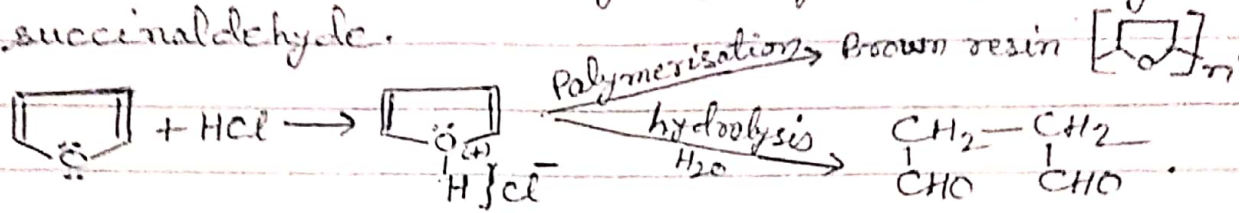 .succinaldehyde.
Polymerisation Brown resin [ O ]n
O + HCl → O (+) hydrolysis CH2 - CH2
H } Cl- H2O CHO CHO .